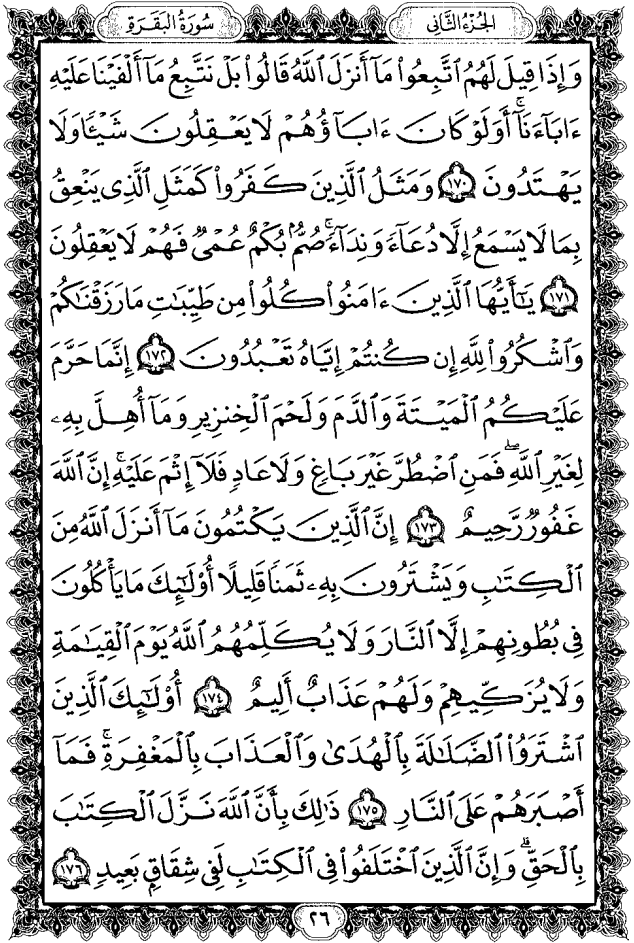 الجزء الثاني
سورة البقرة
وَإِذَا قِيلَ لَهُمُ ٱتَّبِعُوا۟ مَآ أَنزَلَ ٱللَّهُ قَالُوا۟ بَلْ نَتَّبِعُ مَآ أَلْفَيْنَا عَلَيْهِ
ءَابَآءَنَآ ۗ أَوَلَوْ كَانَ ءَابَآؤُهُمْ لَا يَعْقِلُونَ شَيْـًٔا وَلَا
يَهْتَدُونَ ١٧٠ وَمَثَلُ ٱلَّذِينَ كَفَرُوا۟ كَمَثَلِ ٱلَّذِى يَنْعِقُ
بِمَا لَا يَسْمَعُ إِلَّا دُعَآءً وَنِدَآءً ۚ صُمٌّۢ بُكْمٌ عُمْىٌ فَهُمْ لَا يَعْقِلُونَ
١٧١ يَـٰٓأَيُّهَا ٱلَّذِينَ ءَامَنُوا۟ كُلُوا۟ مِن طَيِّبَـٰتِ مَا رَزَقْنَـٰكُمْ
وَٱشْكُرُوا۟ لِلَّهِ إِن كُنتُمْ إِيَّاهُ تَعْبُدُونَ ١٧٢ إِنَّمَا حَرَّمَ
عَلَيْكُمُ ٱلْمَيْتَةَ وَٱلدَّمَ وَلَحْمَ ٱلْخِنزِيرِ وَمَآ أُهِلَّ بِهِۦ
لِغَيْرِ ٱللَّهِ ۖ فَمَنِ ٱضْطُرَّ غَيْرَ بَاغٍ وَلَا عَادٍ فَلَآ إِثْمَ عَلَيْهِ ۚ إِنَّ ٱللَّهَ
غَفُورٌ رَّحِيمٌ ١٧٣ إِنَّ ٱلَّذِينَ يَكْتُمُونَ مَآ أَنزَلَ ٱللَّهُ مِنَ
ٱلْكِتَـٰبِ وَيَشْتَرُونَ بِهِۦ ثَمَنًا قَلِيلًا أُو۟لَـٰٓئِكَ مَا يَأْكُلُونَ
فِى بُطُونِهِمْ إِلَّا ٱلنَّارَ وَلَا يُكَلِّمُهُمُ ٱللَّهُ يَوْمَ ٱلْقِيَـٰمَةِ
وَلَا يُزَكِّيهِمْ وَلَهُمْ عَذَابٌ أَلِيمٌ ١٧٤ أُو۟لَـٰٓئِكَ ٱلَّذِينَ
ٱشْتَرَوُا۟ ٱلضَّلَـٰلَةَ بِٱلْهُدَىٰ وَٱلْعَذَابَ بِٱلْمَغْفِرَةِ ۚ فَمَآ
أَصْبَرَهُمْ عَلَى ٱلنَّارِ ١٧٥ ذَٰلِكَ بِأَنَّ ٱللَّهَ نَزَّلَ ٱلْكِتَـٰبَ
بِٱلْحَقِّ ۗ وَإِنَّ ٱلَّذِينَ ٱخْتَلَفُوا۟ فِى ٱلْكِتَـٰبِ لَفِى شِقَاقٍۭ بَعِيدٍ ١٧٦
٢٦